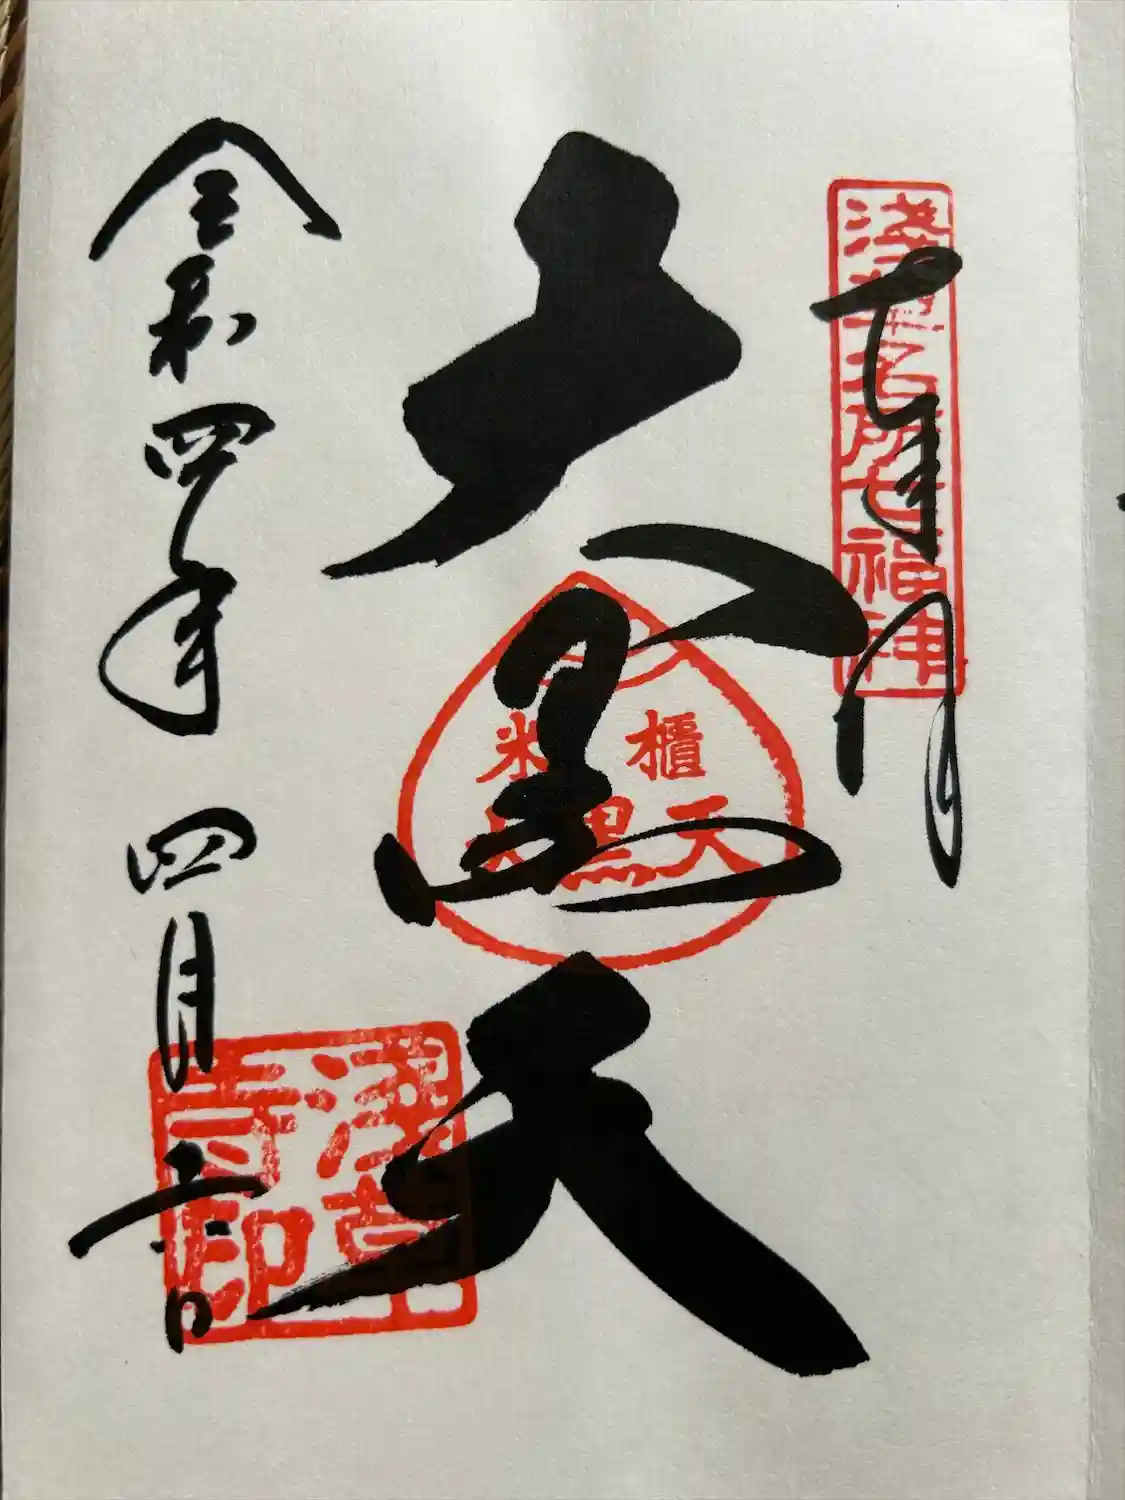 奉拝
浅草名所七福神
大黒天
米櫃
大黒天
令和四年 四月 六日
浅草
寺印